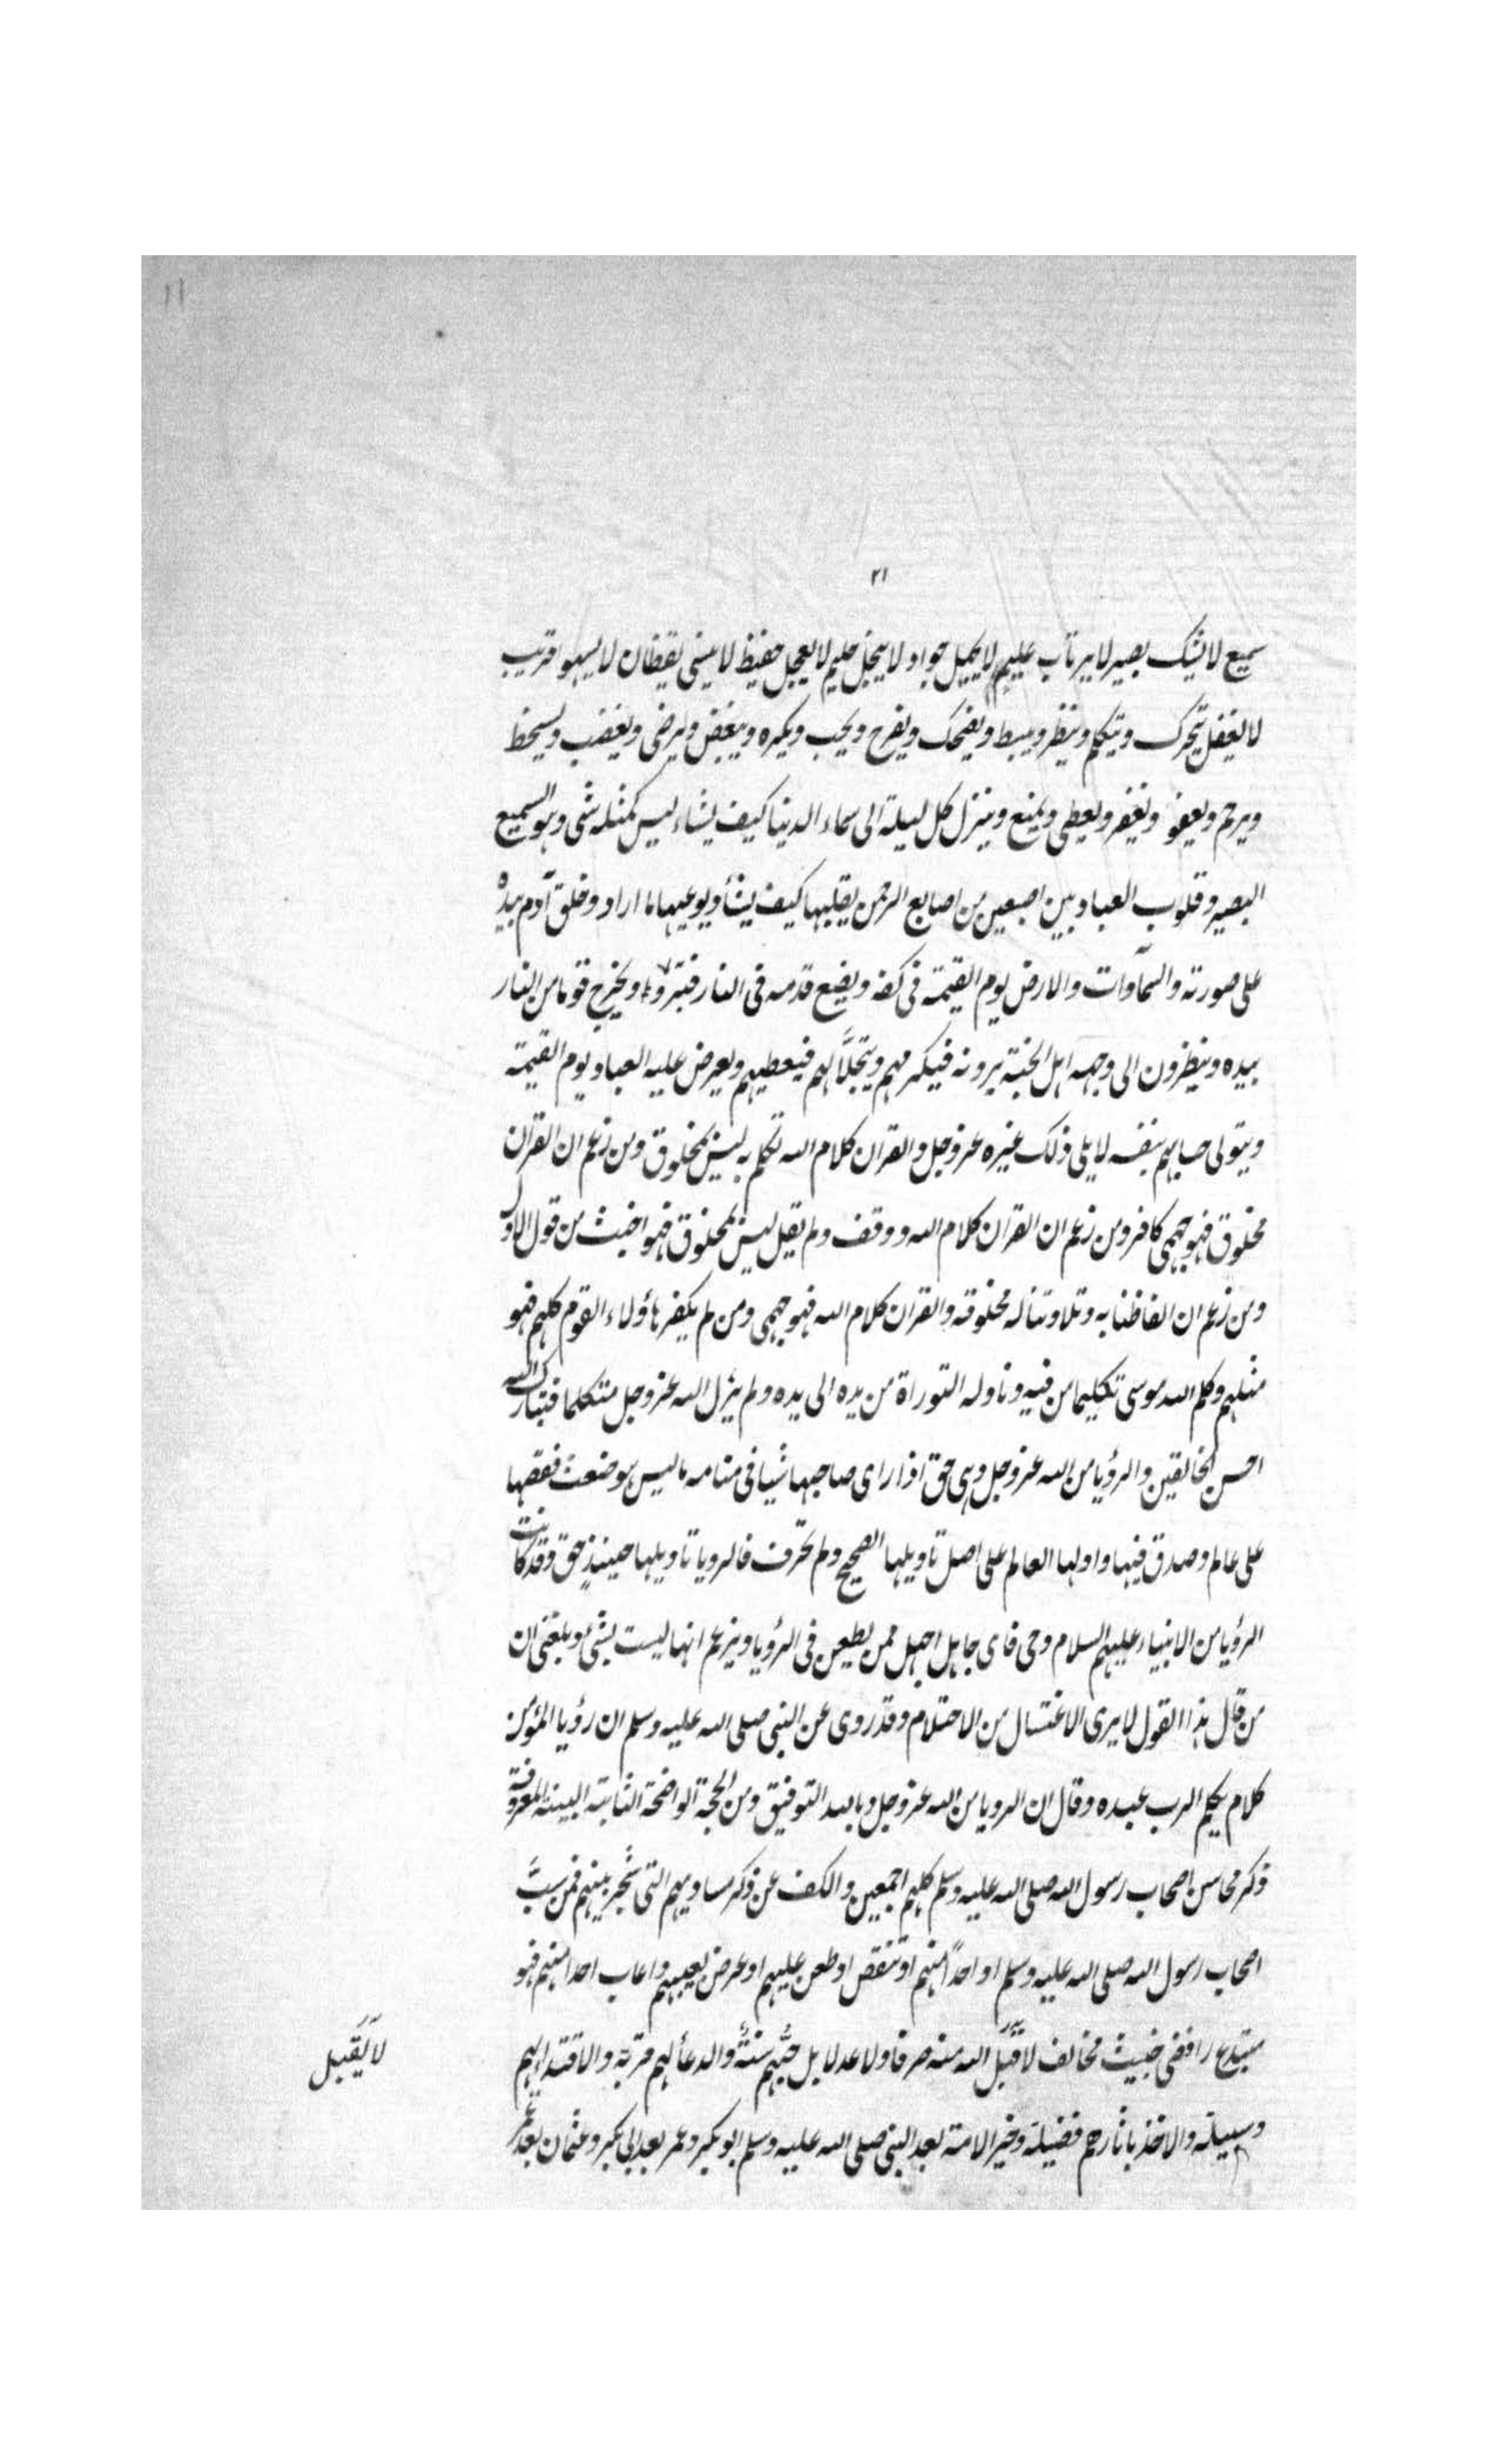 ١١
٢١
سميع لا يشك بصير لا يرتاب عليم لا يجهل جواد لا يبخل حليم لا يعجل حفيظ لا ينسى يقظان لا يسهو قريب
لا يغفل يتحرك ويتكلم وينظر ويبسط ويضحك ويفرح ويحب ويكره ويبغض ويرضى ويغضب ويسخط
ويرحم ويعفو ويغفر ويعطى ويمنع وينزل كل ليلة الى سماء الدنيا كيف يشاء ليس كمثله شى وهو السميع
البصير وقلوب العباد بين اصبعين من اصابع الرحمن يقلبها كيف يشأ ويوعيها ما اراد وخلق آدم بيده
على صورته والسمآوات والارض يوم القيمة فى كفه ويضع قدمه فى النار فتنزوى ويخرج قوما من النار
بيده وينظرون الى وجهه اهل الجنة يرونه فيكرمهم ويتجلّا لهم فيعطيهم ويعرض عليه العباد يوم القيمة
ويتولى حسابهم بنفسه لا يلى ذلك غيره عز وجل والقران كلام الله تكلم به ليس بمخلوق ومن زعم ان القران
مخلوق فهو جهمى كافر ومن زعم ان القران كلام الله ووقف ولم يقل ليس بمخلوق فهو اخبث من قول الاول
ومن زعم ان الفاظنا به وتلاوتنا له مخلوقة والقران كلام الله فهو جهمى ومن لم يكفر هاؤلاء القوم كلهم فهو
مثلهم وكلم الله موسى تكليما من فيه وناوله التوراة من يده الى يده ولم يزل الله عز وجل متكلما فتبارك الله
احسن الخالقين والرؤيا من الله عز وجل وهى حق اذا راى صاحبها شيا فى منامه ما ليس هو ضغث فقصها
على عالم وصدق فيها واولها العالم على اصل تاويلها الصحيح ولم تحرف فالرويا تاويلها حينئذٍ حق وقد كانت
الرؤيا من الانبياء عليهم السلام وحى فاى جاهل اجهل ممن يطعن فى الرؤيا ويزعم انها ليست بشى وبلغنى ان
من قال هذا القول لا يرى الاغتسال من الاحتلام وقد روى عن النبى صلى الله عليه وسلم ان رؤيا المؤمن
كلام يكلم الرب عبده وقال ان الرويا من الله عز وجل وبالله التوفيق ومن الحجة الواضحة الثابتة البينة المعروفة
ذكر محاسن اصحاب رسول الله صلى الله عليه وسلم كلهم اجمعين والكف عن ذكر مساويهم التى شجر بينهم فمن سبَّ
اصحاب رسول الله صلى الله عليه وسلم او احداً منهم او تنقص او طعن عليهم او عرض بعيبهم واعاب احدا منهم فهو
مبتدع رافضى خبيث مخالف لا قبل الله منه صرفا ولا عدلا بل حبُّهم سنةٌ والدعأ لهم قربة والاقتدا بهم
لا يَقبل
وسيلة والاخذ باثارهم فضيلة وخير الامة بعد النبى صلى الله عليه وسلم ابو بكر وعمر بعد ابى بكر وعثمان بعد عمر